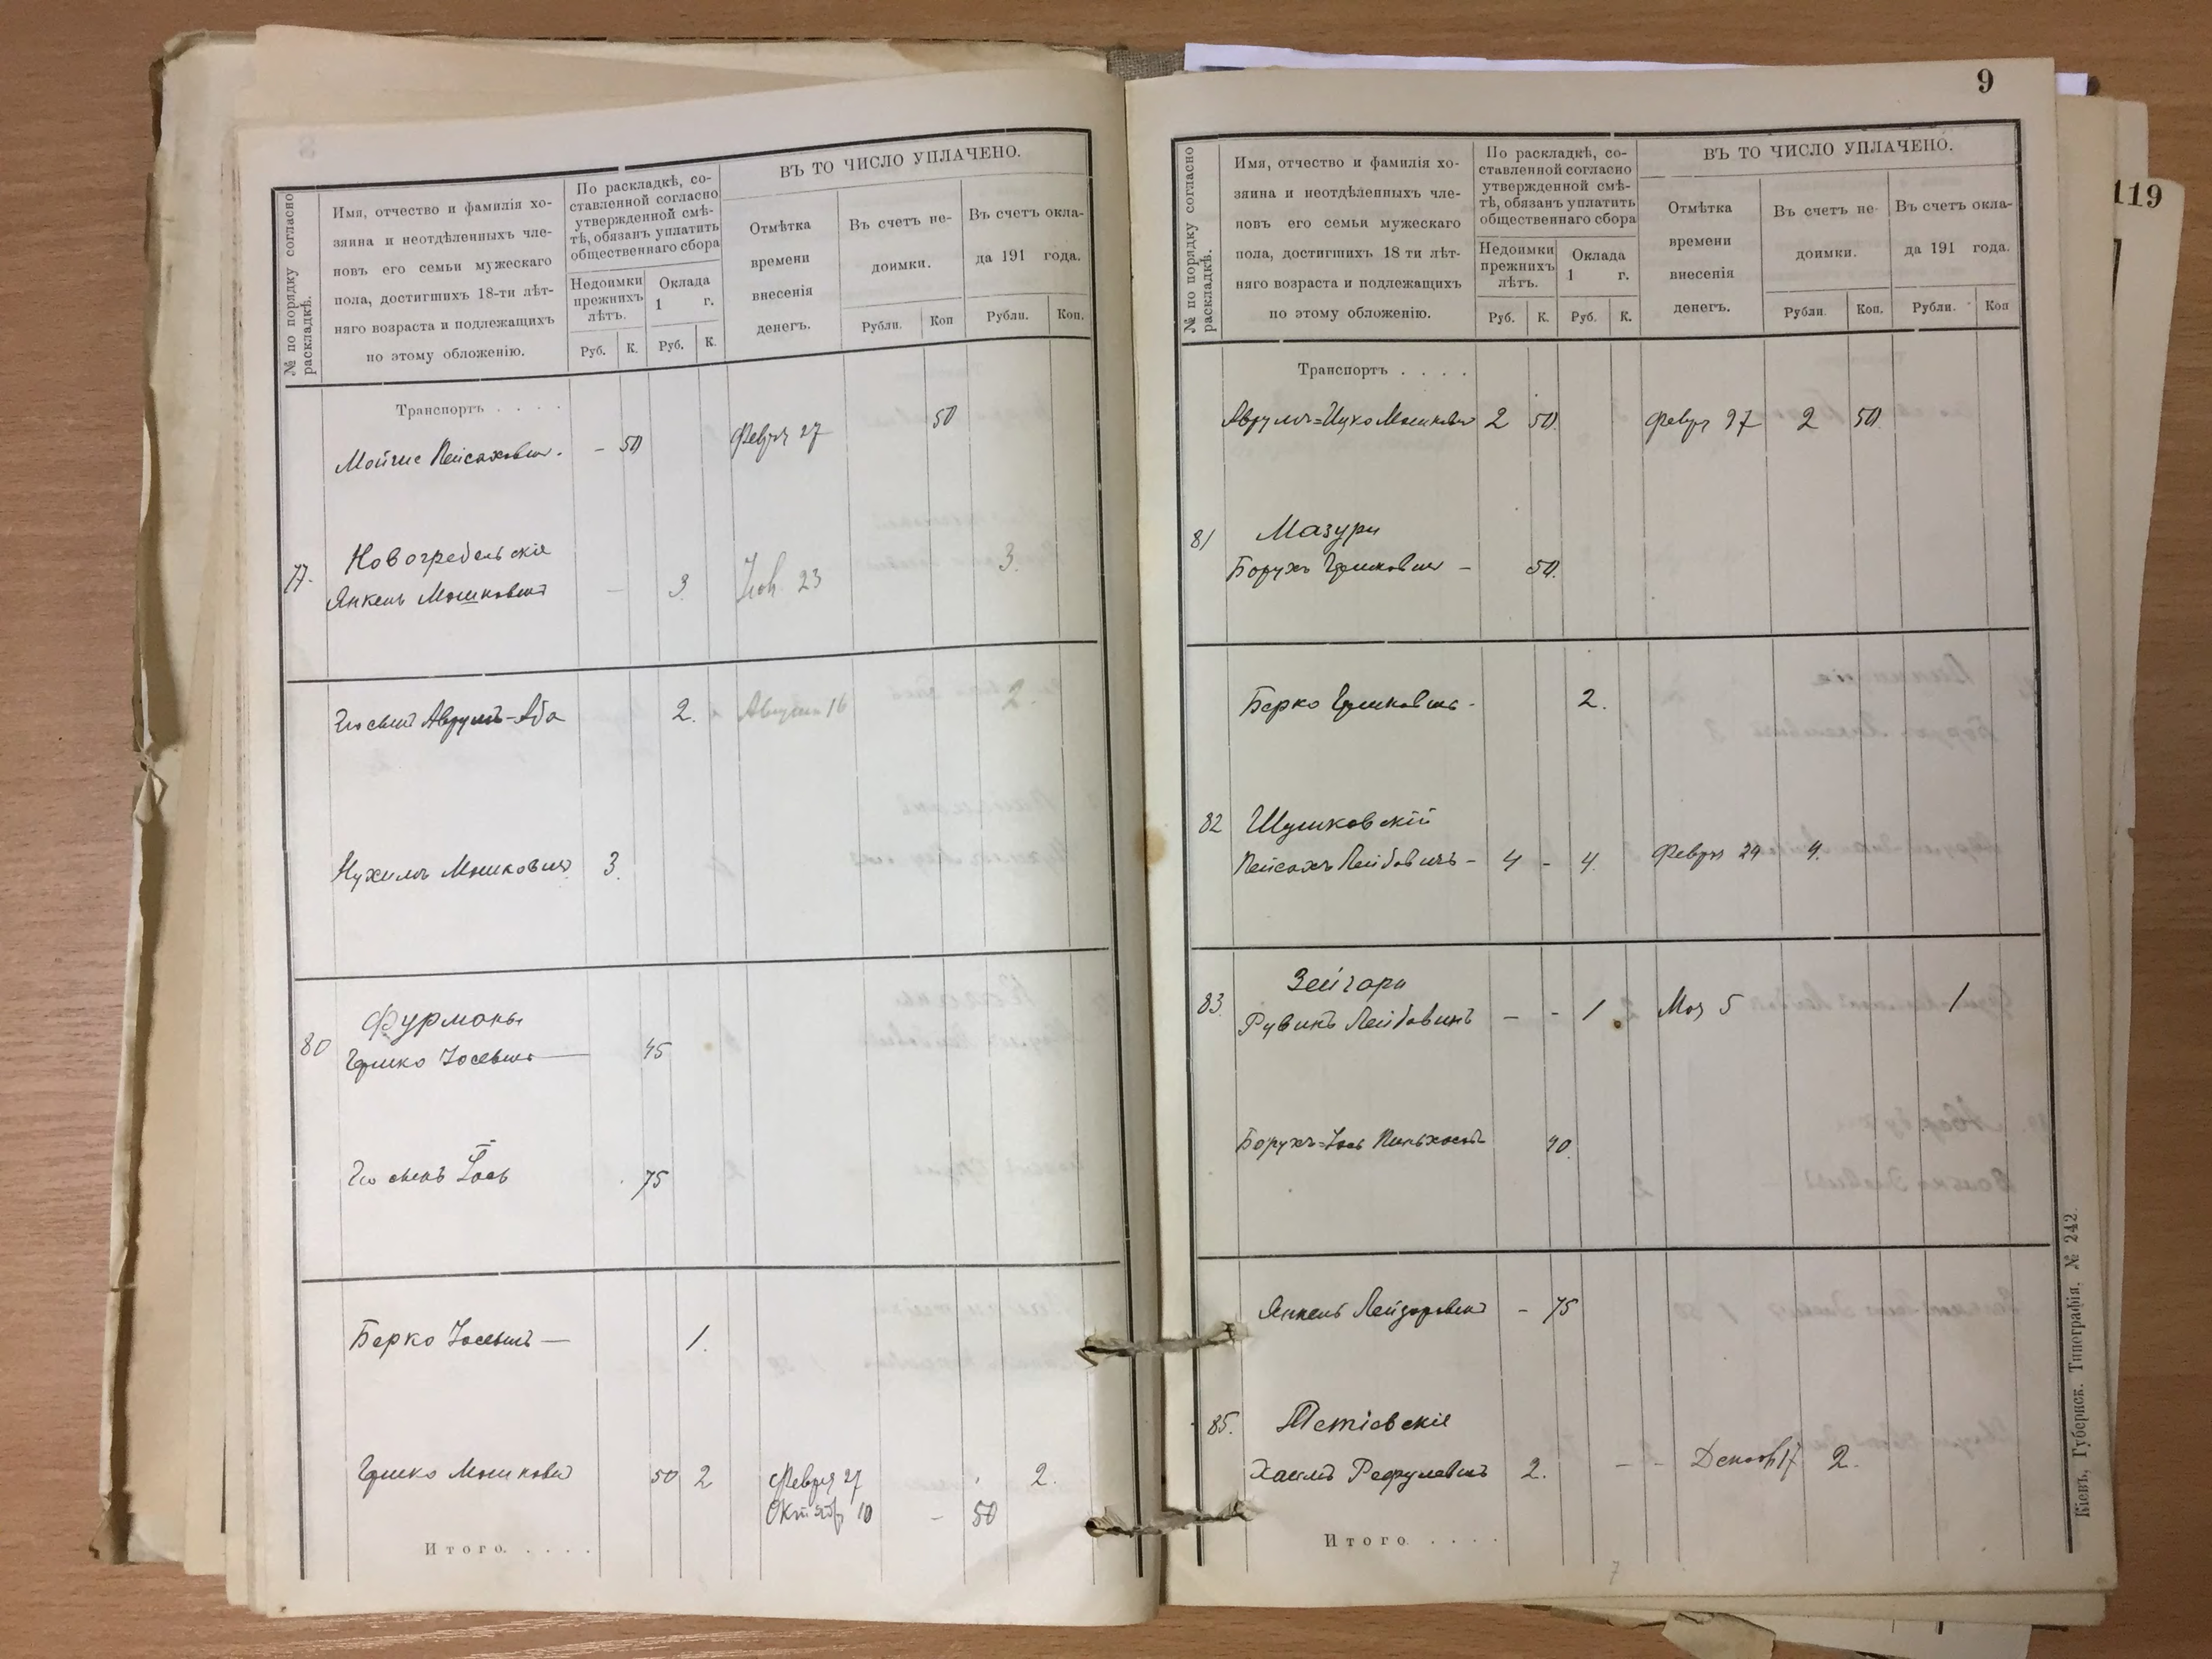 № по порядку согласно раскладкѣ.
Имя, отчество и фамилія хо-
зяина и неотдѣленныхъ чле-
новъ его семьи мужескаго
пола, достигшихъ 18-ти лѣт-
няго возраста и подлежащихъ
по этому обложенію.
По раскладкѣ, со-
ставленной согласно
утвержденной смѣ-
тѣ, обязанъ уплатить
общественнаго сбора
Недоимки
прежнихъ
лѣтъ.
Оклада
1 г.
Руб. К. Руб. К.
ВЪ ТО ЧИСЛО УПЛАЧЕНО.
Отмѣтка
времени
внесенія
денегъ.
Въ счетъ не-
доимки.
Въ счетъ окла-
да 191 года.
Рубли. Коп Рубли. Коп.
Транспортъ . . . .
Мойше Пейсаховичъ. - 50 Февр 27 50
77. Новогребельскіе
Янкель Мошковичъ - 3. Нов. 23 3.
Аврумъ-Аба 2. Августа 16 2.
Нухимъ Мошковичъ 3.
80 Фурманы
Гершко Іосевичъ 45
Іось 75
Берко Іосевичъ — 1.
Гершко Мошковичъ 50 2 Февр 27 2.
Октябр 10 - 50
Итого. . . . .
9
№ по порядку согласно раскладкѣ.
Имя, отчество и фамилія хо-
зяина и неотдѣленныхъ чле-
новъ его семьи мужескаго
пола, достигшихъ 18 ти лѣт-
няго возраста и подлежащихъ
по этому обложенію.
По раскладкѣ, со-
ставленной согласно
утвержденной смѣ-
тѣ, обязанъ уплатить
общественнаго сбора
Недоимки
прежнихъ
лѣтъ.
Оклада
1 г.
Руб. К. Руб. К.
ВЪ ТО ЧИСЛО УПЛАЧЕНО.
Отмѣтка
времени
внесенія
денегъ.
Въ счетъ не-
доимки.
Въ счетъ окла-
да 191 года.
Рубли. Коп. Рубли. Коп
Транспортъ . . . .
Аврумъ=Ицко Мошковичъ 2 50. Февр 27 2 50
81 Мазуры
Борухъ Гершковичъ - 50.
Берко Гершковичъ - 2.
82 Шушковскій
Пейсахъ Лейбовичъ - 4 - 4. Февр 29 4.
83. Зейгари
Рувинъ Лейбовичъ - - 1 Мая 5 1
Борухъ=Іось Пинхасовъ 40.
Янкель Лейзоровичъ - 75
85. Тетіевскіе
Хаимъ Рефулевичъ 2. - - Декабр 17 2.
Итого. . . . .
Кіевъ, Губернск. Типографія. № 242.
119